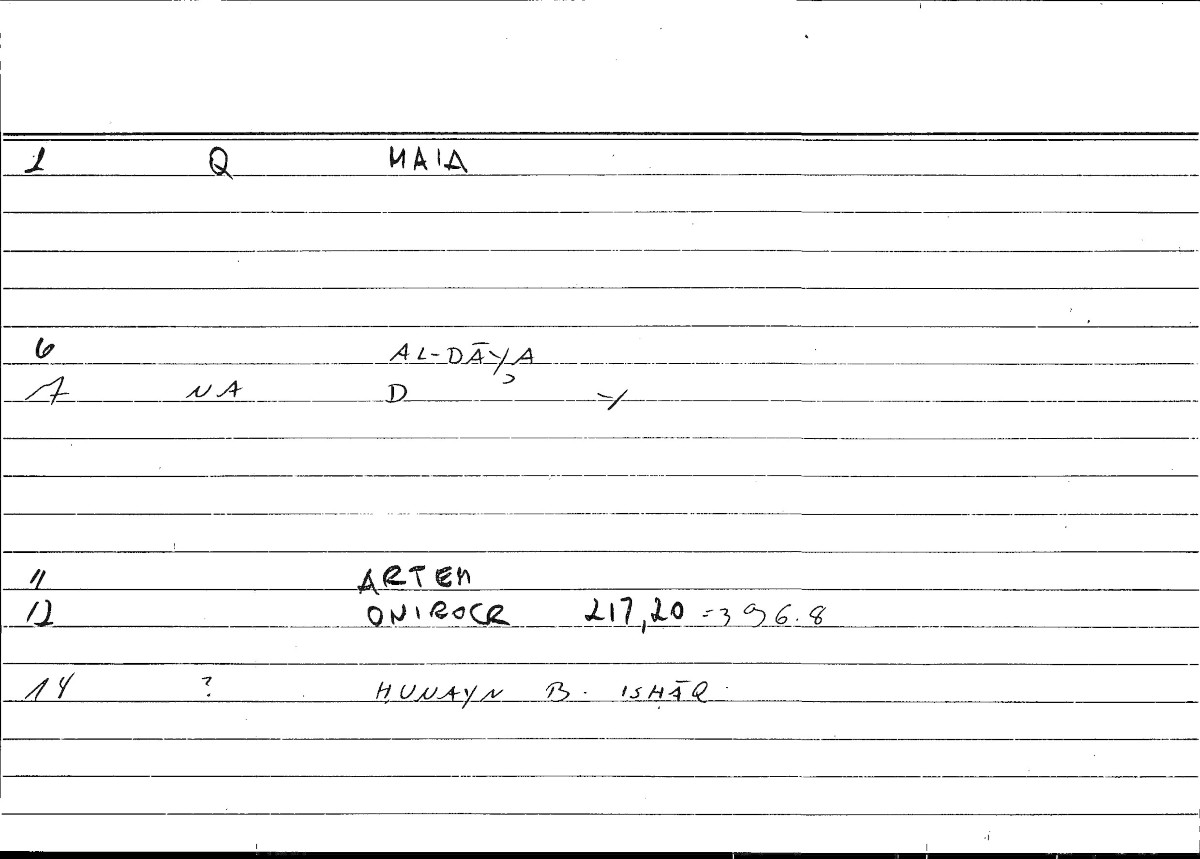 1 Q MAIA
6 AL-DĀYA
7 NA D =/
11 ARTEM
12 ONIROCR 217,20 = 396.8
14 ? ḤUNAYN B. ISḤĀQ